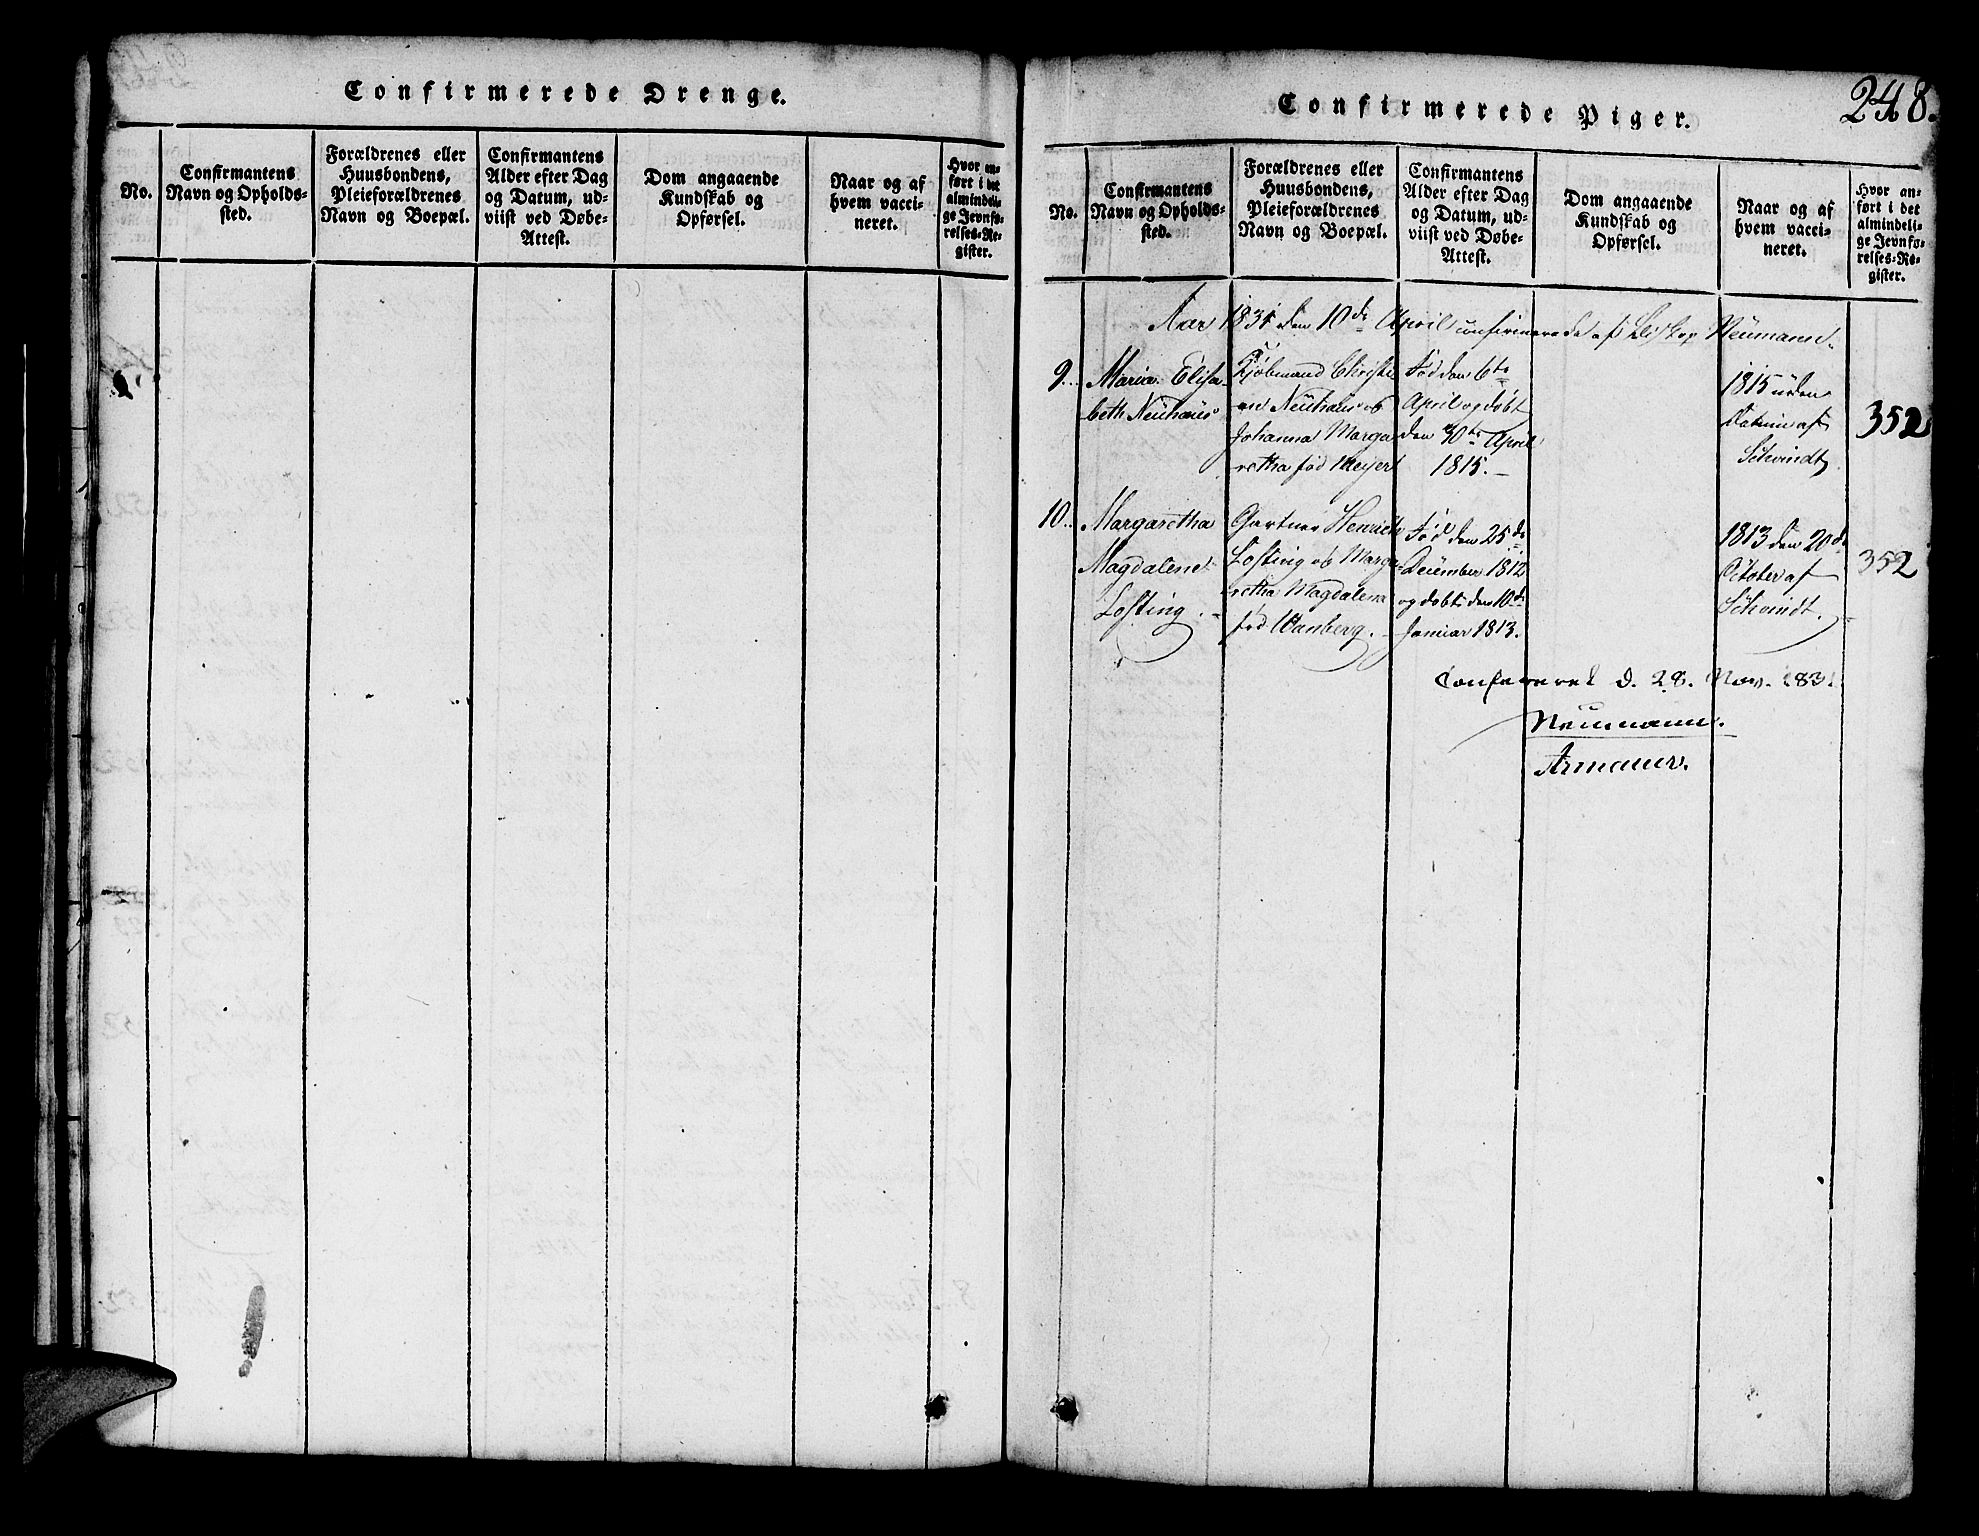 Confirmerede Drenge.
No.
Confirmantens
Navn og Opholds-
sted.
Forældrenes eller
Huusbondens,
Pleieforældrenes
Navn og Boepæl.
Confirmantens
Alder efter Dag
og Datum, ud-
viist ved Døbe-
Attest.
Dom angaaende
Kundskab og
Opførsel.
Naar og af
hvem vacci-
neret.
Hvor an-
ført i det
almindeli-
ge Jevnfø-
relses-Re-
gister.
Confirmerede Piger.
248.
No.
Confirmantens
Navn og Opholds-
sted.
Forældrenes eller
Huusbondens,
Pleieforældrenes
Navn og Boepæl.
Confirmantens
Alder efter Dag
og Datum, ud-
viist ved Døbe-
Attest.
Dom angaaende
Kundskab og
Opførsel.
Naar og af
hvem vacci-
neret.
Hvor an-
ført i det
almindeli-
ge Jevnfø-
relses-Re-
gister.
Aar 1831 den 10de April confirmerede af Biskop Neumann.
9.
Maria Elisa-
beth Neuhaus
Kjøbmand Christi-
an Neuhaus og
Johanna Marga
retha fød Meyer
Fød den 6te
April og døbt
den 30te April
1815.
1815 uden
Datum af
Schvindt
352
10.
Margaretha
Magdalene
Losting.
Gartner Henrich
Losting og Marga-
retha Magdalena
fød Wanberg.
Fød den 25de
December 1812
og døbt den 10de
Januar 1813.
1813 den 20de
October af
Schvindt.
352
Confereret d. 28. Nov. 1831.
Neumann.
Armauer.